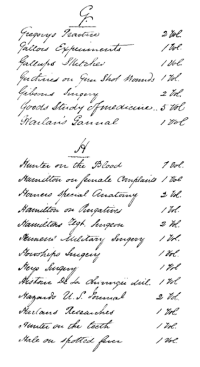 G
Gregorys Practice 2 Vol
Galtois Experiments 1 Vol
Gallups Sketches 1 Vol
Guthries on Gun Shot Wounds 1 Vol
Gibsons Surgery 2 Vol
Goods Study of medecine 5 Vol
Harlan's Gannal 1 Vol
H
Hunter on the Blood 1 Vol
Hamilton on female Complaints 1 Vol
Horners Special Anatomy 2 Vol
Hamilton on Purgatives 1 Vol
Hamiltons Regt Surgeon 2 Vol
Hennens Military Surgery 1 Vol
Howships Surgery 1 Vol
Heys Surgery 1 Vol
Histoire De La Chirurgie 1 Vol
Hazards U.S. Journal 2 Vol
Harlans Researches 1 Vol
Hunter on the teeth 1 Vol
Hale on spotted fever 1 Vol